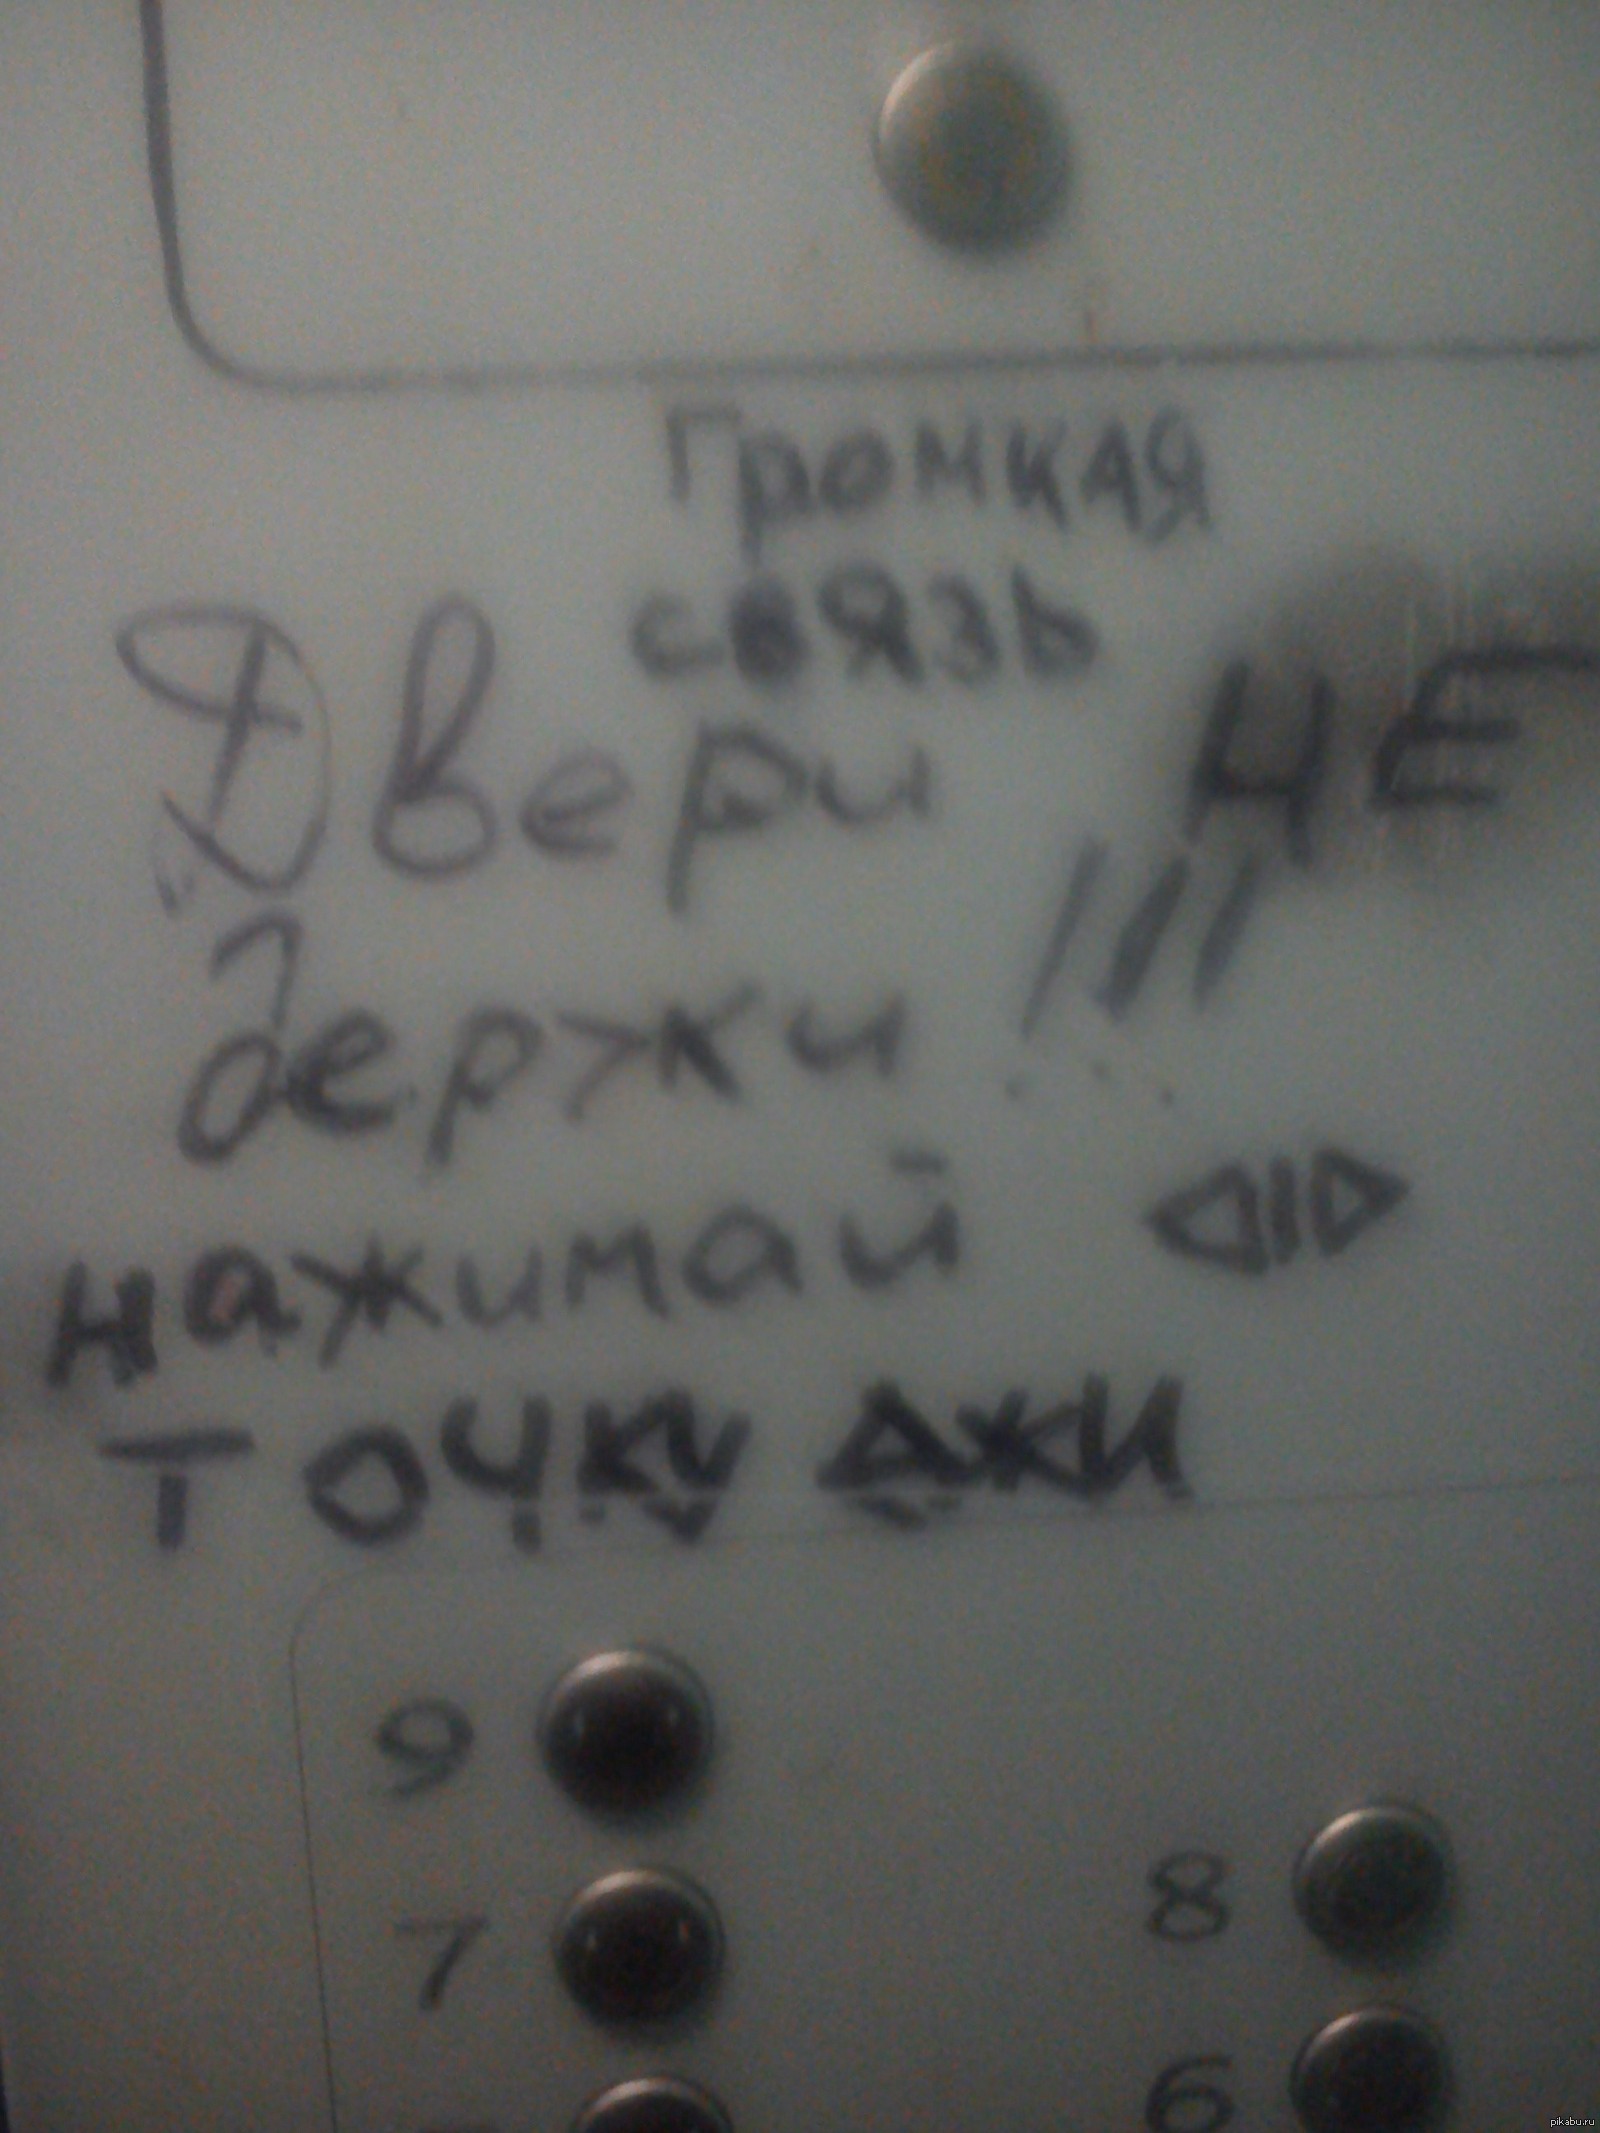 Громкая
связь
Двери НЕ
держи!!!
нажимай
точку
9
7
8
6
pikabu.ru